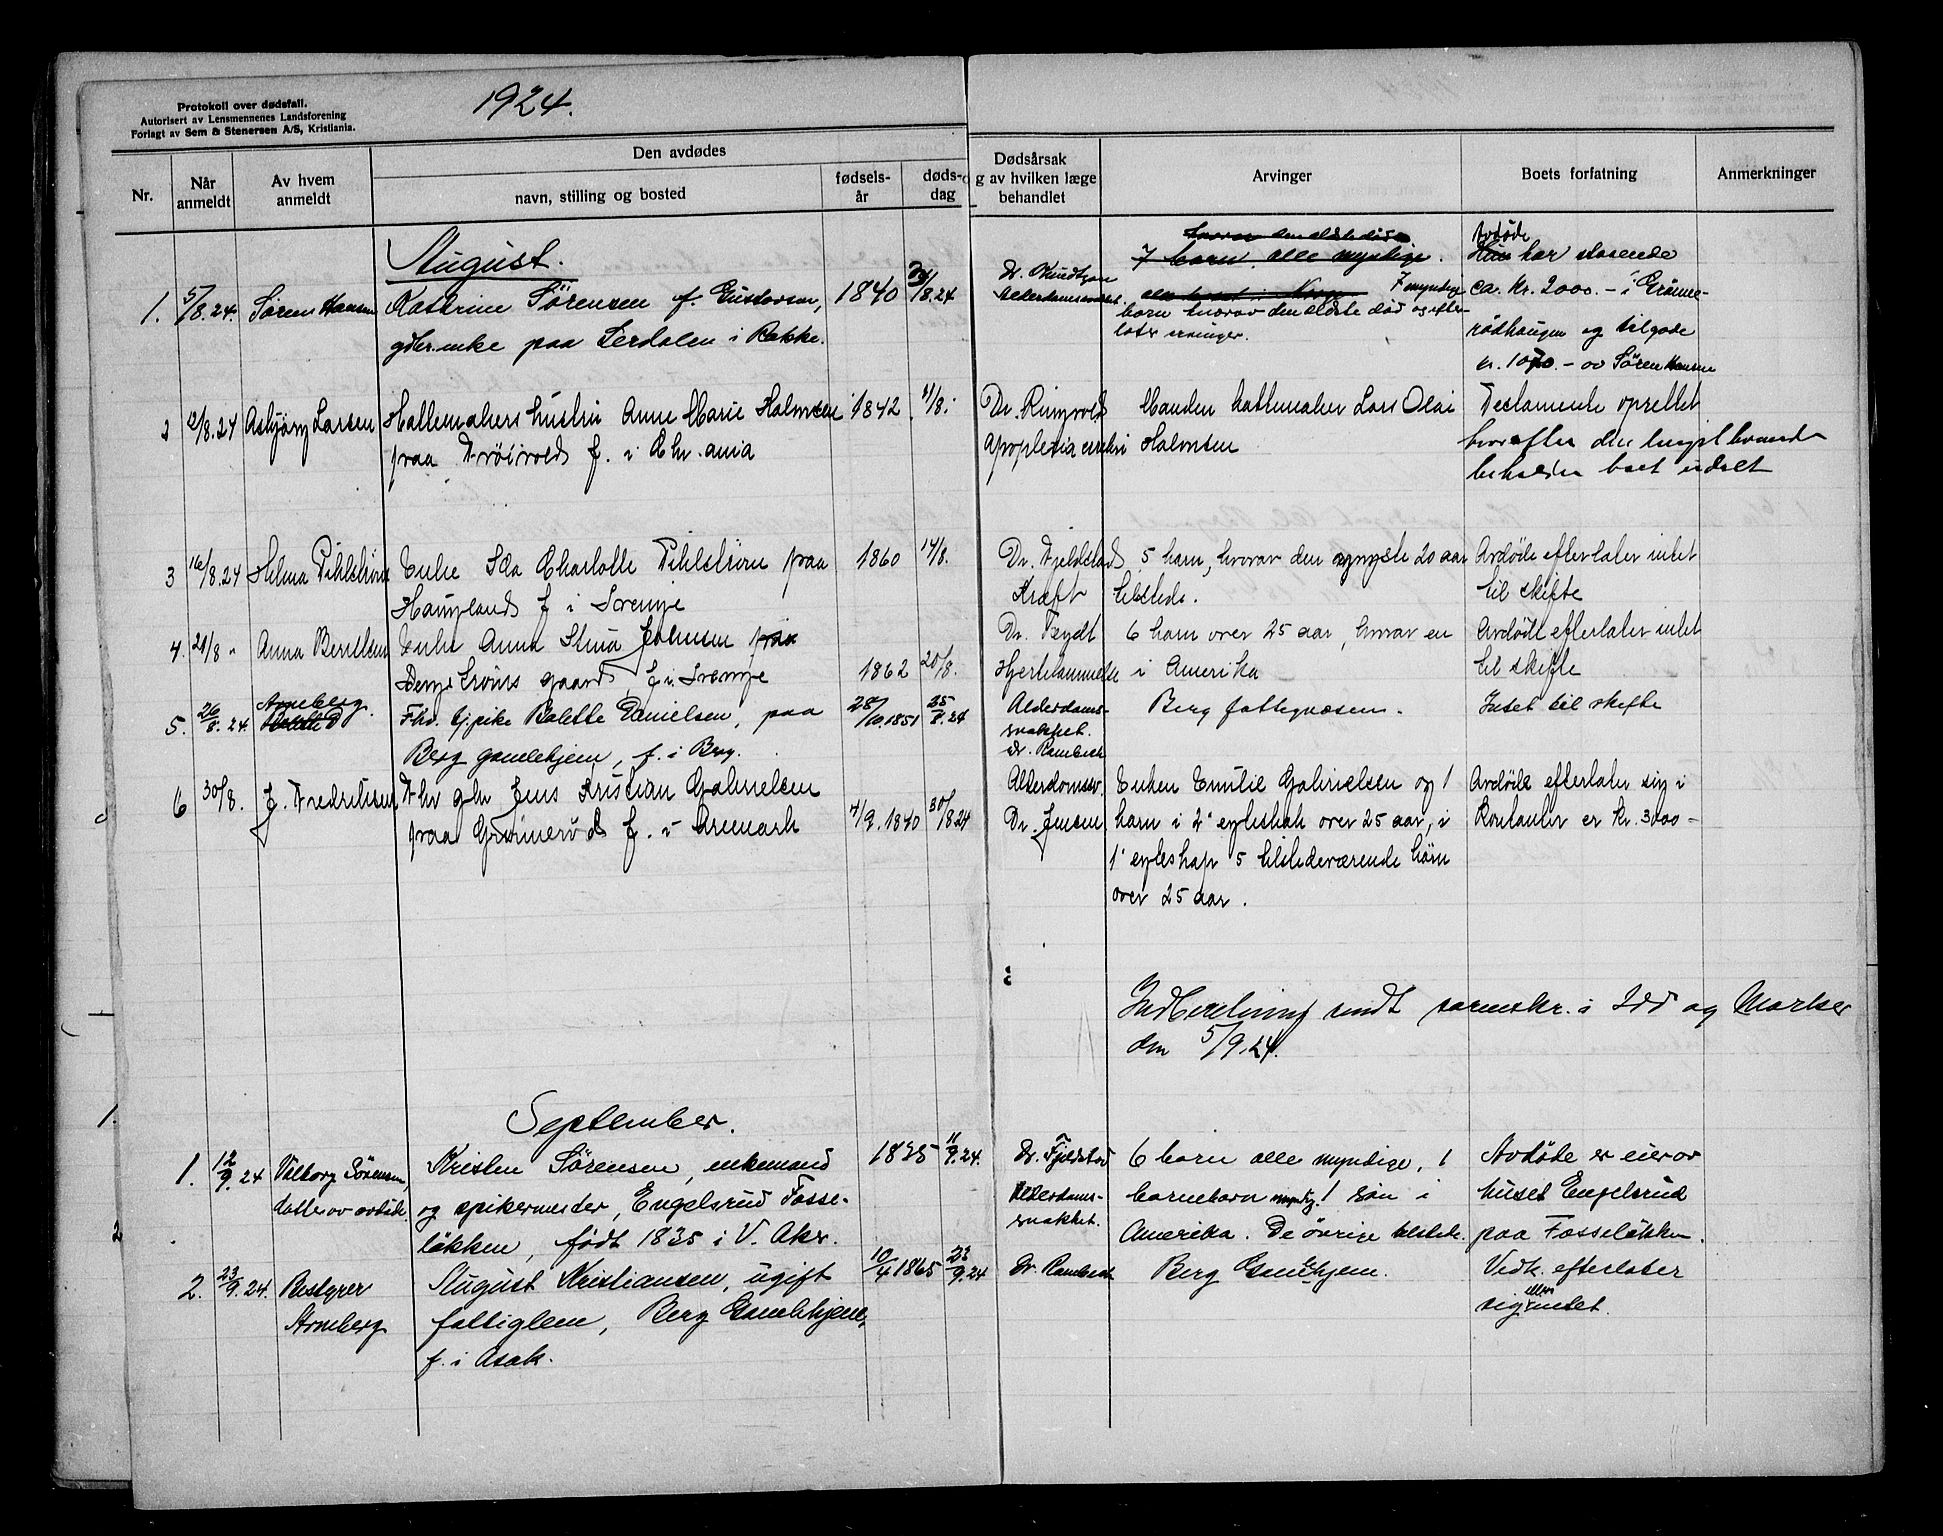 Protokoll over dødsfall.
Autorisert av Lensmennenes Landsforening
Forlagt av Sem & Stenersen A/S, Kristiania.
1924.
Nr.
Når anmeldt
Av hvem anmeldt
Den avdødes
navn, stilling og bosted
fødsels-
år
døds-
dag
Dødsårsak
og av hvilken læge
behandlet
Arvinger
Boets forfatning
Anmerkninger
August.
1. 5/8.24. Søren Hansen
Kathrine Sørensen f. Gustavsen,
gdbr.enke paa Lerdalen i Rokke.
1840
8.24
Dr. Knudtzon
Alderdomssvakhet.
7 barn, alle myndige.
7 myndige
barn hvorav den eldste død og efter-
later arvinger.
Avdøde
har staaende
ca. kr. 2000.- i Grønne-
rødhaugen og tilgode
kr. 1070.- av Søren Hansen
2 12/8.24 Asbjørg Larsen
Hattemakers hustru Anne Marie Halvorsen
paa Trøivold f. i Chr.ania
1842
11/8.
Dr. Ringvold
Apoplexia cerebri
Manden hattemaker Lars Olai
Halvorsen
Testamente oprettet
hvorefter den lengstlevende
beholder boet udelt
3 16/8.24 Helma Pihlstrøm
Enke Ida Charlotte Pihlstrøm paa
Haugland f i Sverige
1860
14/8.
Dr. Fjeldstad
Kræft
5 barn, hvorav den yngste 20 aar
tilstede.
Avdøde efterlater intet
til skifte
4. 21/8 " Anna Berntsen
Enke Anna Stina Johnsen paa
Bengtstrøms gaard, f i Sverige
1862
20/8.
Dr. Feydt
Hjertelammelse
6 barn over 25 aar, hvorav en
i Amerika
Avdøde efterlater intet
til skifte
5. 26/8.24. Arneberg.
Fhv. tj.pike Bolette Danielsen, paa
Berg gamlehjem, f. i Berg.
28/10.1851
25/8.24
Alderdoms-
svakhet.
Dr. Rambech
Berg fattigvæsen.
Intet til skifte
6 30/8. J. Fredriksen
Fhv gbr Jens Kristian Gabrielsen
paa Grimmerød f. i Aremark
4/9.1840
30/8 24
Alderdomssv.
Dr. Jensen
Enken Emilie Gabrielsen og 1
barn i 2' egteskab over 25 aar, i
1' egteskap 5 tilstedeværende børn
over 25 aar.
Avdøde efterlater sig i
Kontanter er kr. 3000-
Indberetning sendt sorenskr. i Idd og Marker
den 5/9.24.
September.
1. 12/9.24 Valborg Sørensen,
datter av avdøde.
Kristen Sørensen, enkemand
og spikermester, Engelsrud Fosse-
løkken, født 1835 i V. Aker.
1835
11/9.24.
Dr. Fjeldstad
Alderdoms-
svakhet.
6 barn alle myndige, 1
barnebarn myndig. 1 søn i
Amerika. De øvrige tilstede.
Avdøde er eier av
huset Engelsrud
paa Fosseløkken.
2. 23/9.24. Bestyrer
Arneberg
August Kristiansen, ugift
fattiglem, Berg Gamlehjem,
f. i Asak.
10/4 1865
22/9.24
Dr. Rambech
Berg Gamlehjem.
Vedk. efterlater
sig intet.
1.
2